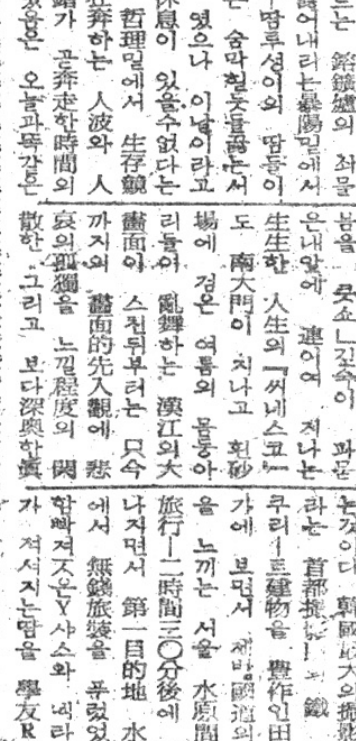 는 鎔鑛爐의 쇠물
어내리는暴陽밑에서
땀루성이의 땀들이
는 숨막힐듯들끓는서
였으나 이날이라고
息이 있을수없다는
哲理밑에서 生存競
奔하는 人波와 人
곧奔走한時間의
음은 오늘과똑같은
봄을 쿳쇼ㄴ깊숙이 파묻
은내앞에 連이여 지나는
生生한 人生의『씨네스코ー
도 南大門이 지나고 흰砂
場에 검은 여름의 몰둥아
리들이 亂舞하는 漢江의大
畵面이 스친뒤부터는 只今
까지의 畵面的先入觀에 悲
哀의孤獨을 느낄程度의 閑
散한 그리고 보다深奧한眞
는것이다 韓國最大의撮影
라는 首都撮 의 鐵
쿠리ー트建物을 豊作인田
가에 보면서 제방國道의
을 느끼는 서울 水原間
旅行ー二時間三〇分後에
나지면서 第一目的地 水
에서 無錢旅裝을 푸렀었
함빡져즈온Y샤스와 넥타
가 적셔지는땀을 學友R